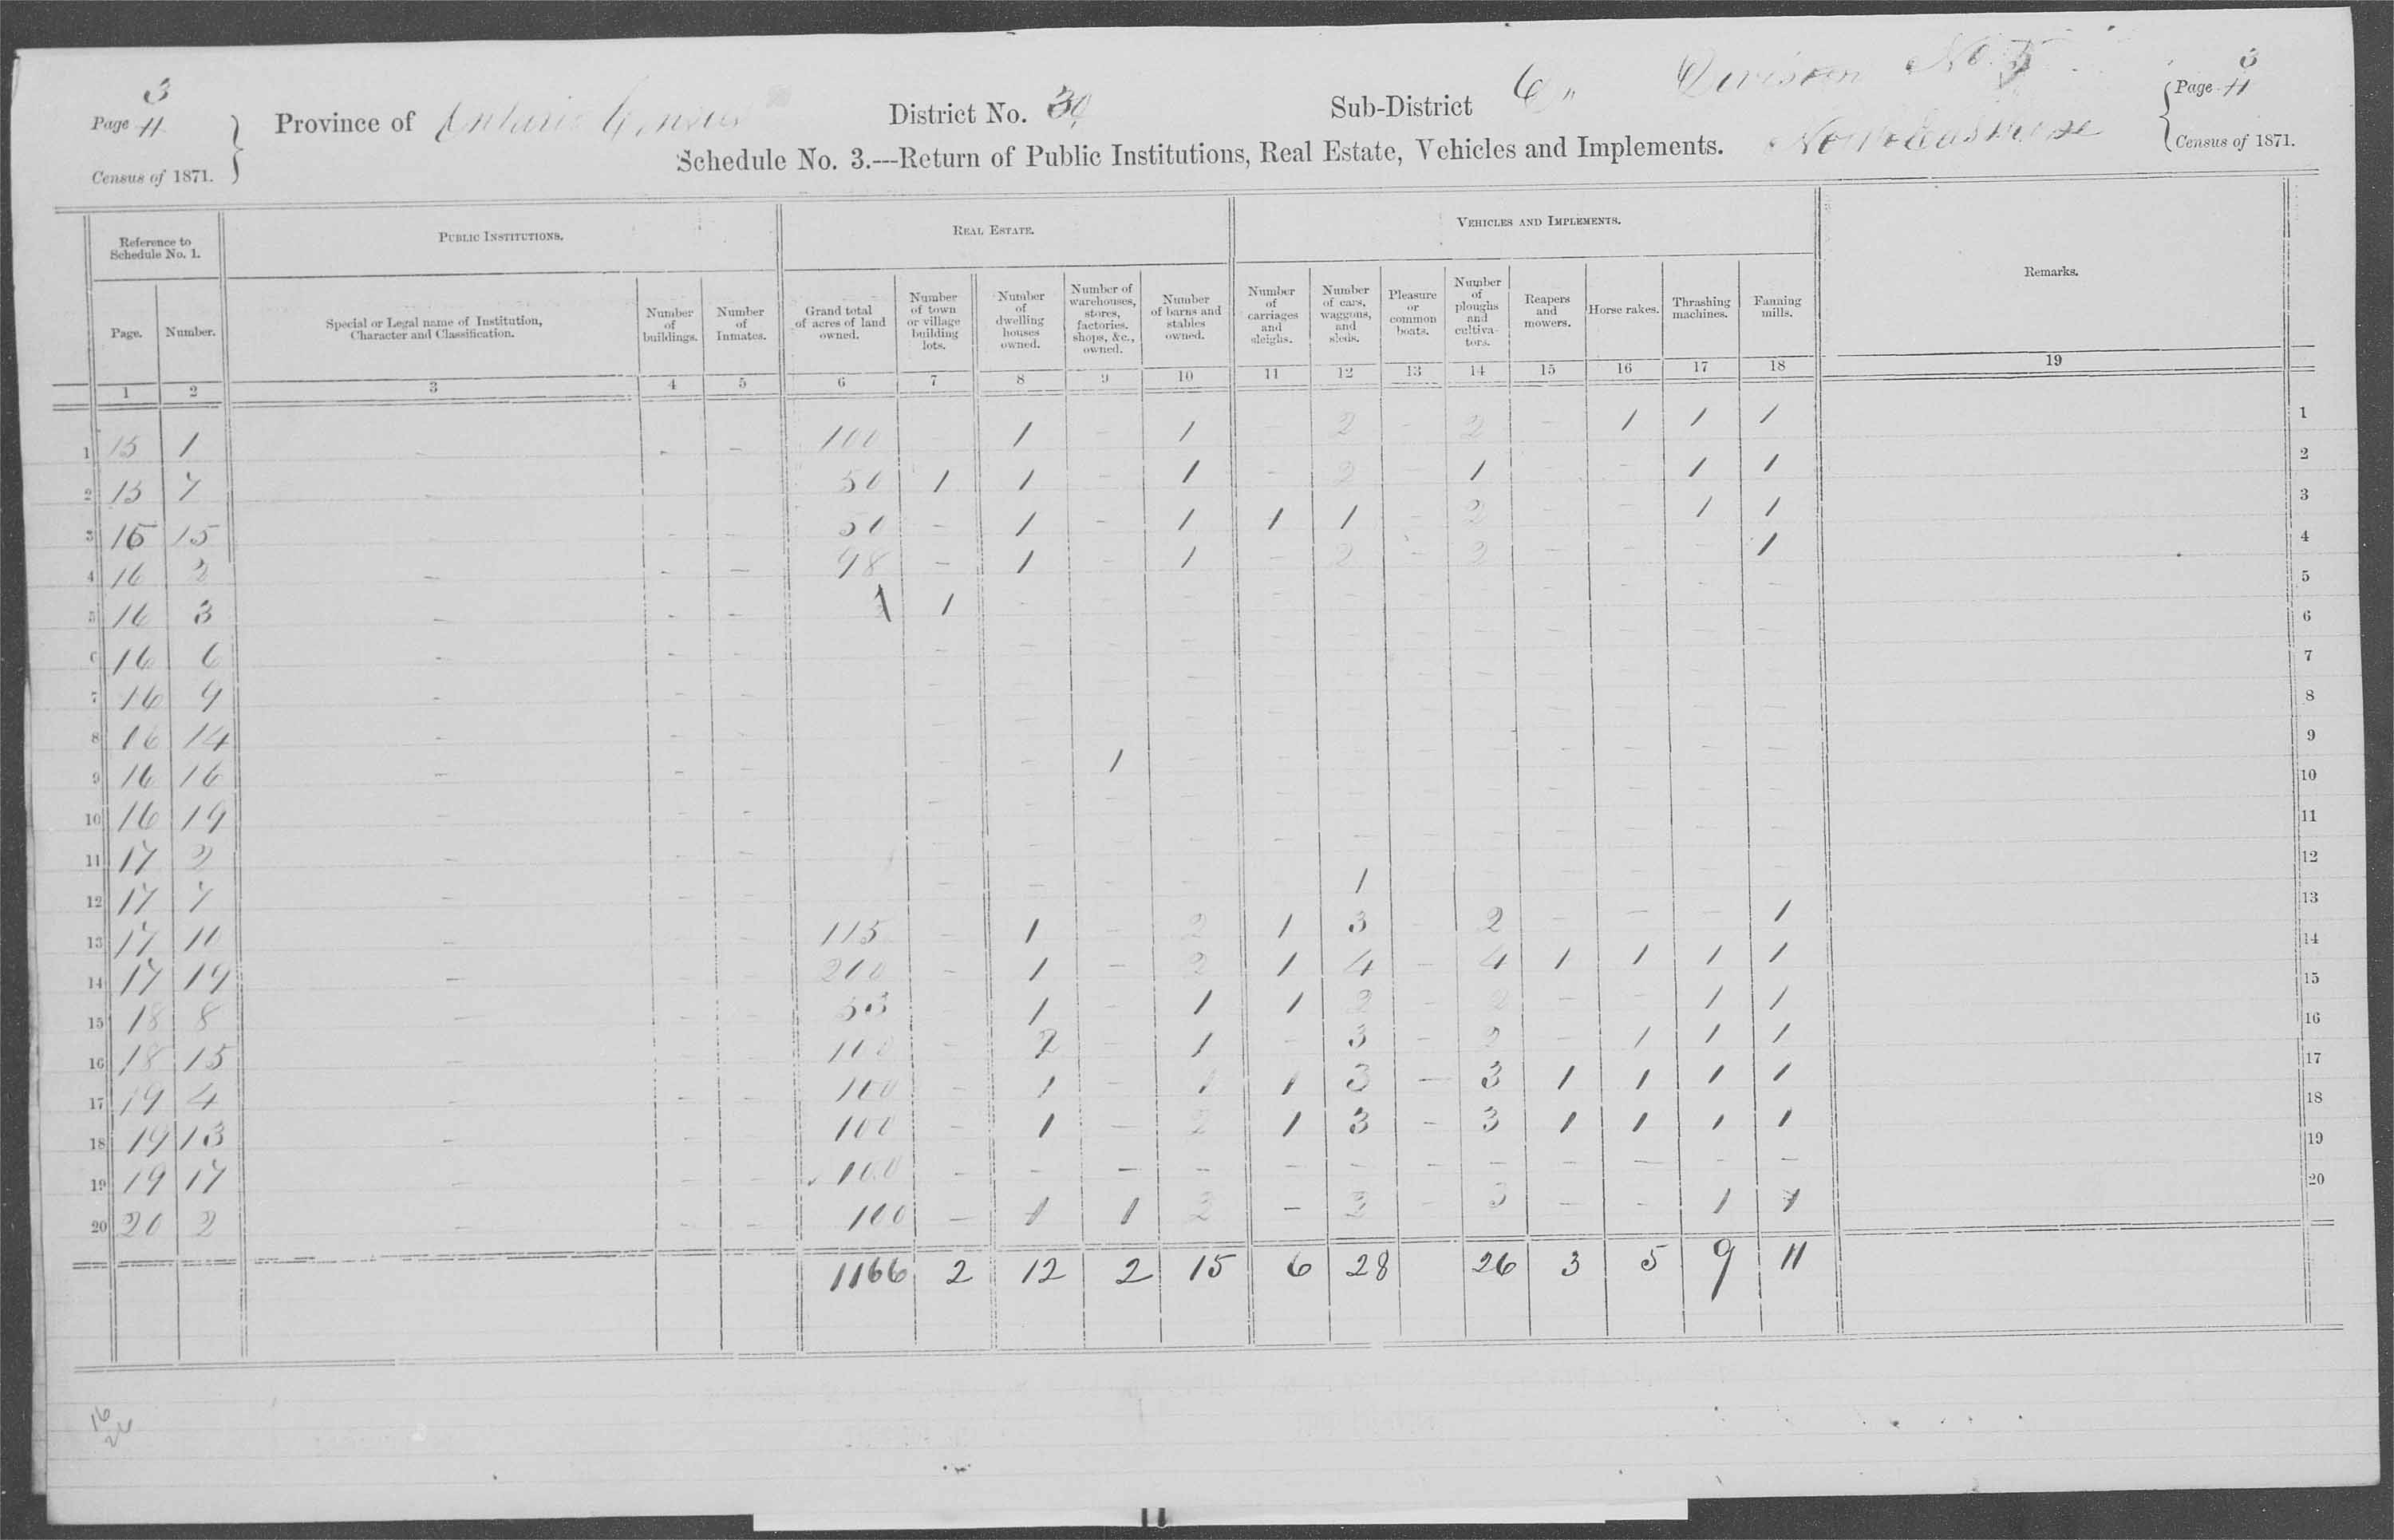 3 Division No. 5 3
Page 11 Province of Ontario Census District No. 30 Sub-District C " Page 11
Census of 1871. Schedule No. 3.---Return of Public Institutions, Real Estate, Vehicles and Implements. Census of 1871.
Reference to Schedule No. 1. PUBLIC INSTITUTIONS. REAL ESTATE. VEHICLES AND IMPLEMENTS. Remarks.
Page. Number. Special or Legal name of Institution, Character and Classification. Number of buildings. Number of Inmates. Grand total of acres of land owned. Number of town or village building lots. Number of dwelling houses owned. Number of warehouses, stores, factories, shops, &c., owned. Number of barns and stables owned. Number of carriages and sleighs. Number of cars, waggons, and sleds. Pleasure or common boats. Number of ploughs and cultivators. Reapers and mowers. Horse rakes. Thrashing machines. Fanning mills.
1 2 3 4 5 6 7 8 9 10 11 12 13 14 15 16 17 18 19
1 15 1 - - - 100 - 1 - 1 - 2 - 2 - 1 1 1 1
2 15 7 - 50 1 1 - 1 - 2 - 1 - - 1 1 2
3 15 15 - - - 50 - 1 - 1 1 1 - 2 - - 1 1 3
4 16 2 - - - 98 - 1 - 1 - 2 - 2 - - - 1 4
5 16 3 - - - 1 1 - - - - - - - - - - - 5
6 16 6 - - - - - - - - - - - - - - - 6
7 16 9 - - - - - - - - - - - - - - - 7
8 16 14 - - - - - - - - - - - - - - - 8
9 16 16 - - - - - 1 - - - - - - - - - 9
10 16 19 - - - - - - - - - - - - - - - 10
11 17 2 - - - - - - - - - - - - - - - 11
12 17 7 - - - - - - - - 1 - - - - 12
13 17 10 - - - 115 - 1 - 2 1 3 - 2 - - - 1 13
14 17 19 - - - 200 - 1 - 2 1 4 - 4 1 1 1 1 14
15 18 8 - - - 53 - 1 - 1 1 2 - 2 - - 1 1 15
16 18 15 - - - 100 - 2 - 1 - 3 - 2 - 1 1 1 16
17 19 4 - - - 100 - 1 - 1 1 3 - 3 1 1 1 1 17
18 19 13 - - - 100 - 1 - 2 1 3 - 3 1 1 1 1 18
19 19 17 - - - 100 - - - - - - - - - - - - 19
20 20 2 - - - 100 - 1 1 2 - 2 - 3 - - 1 1 20
1166 2 12 2 15 6 28 26 3 5 9 11
16
26